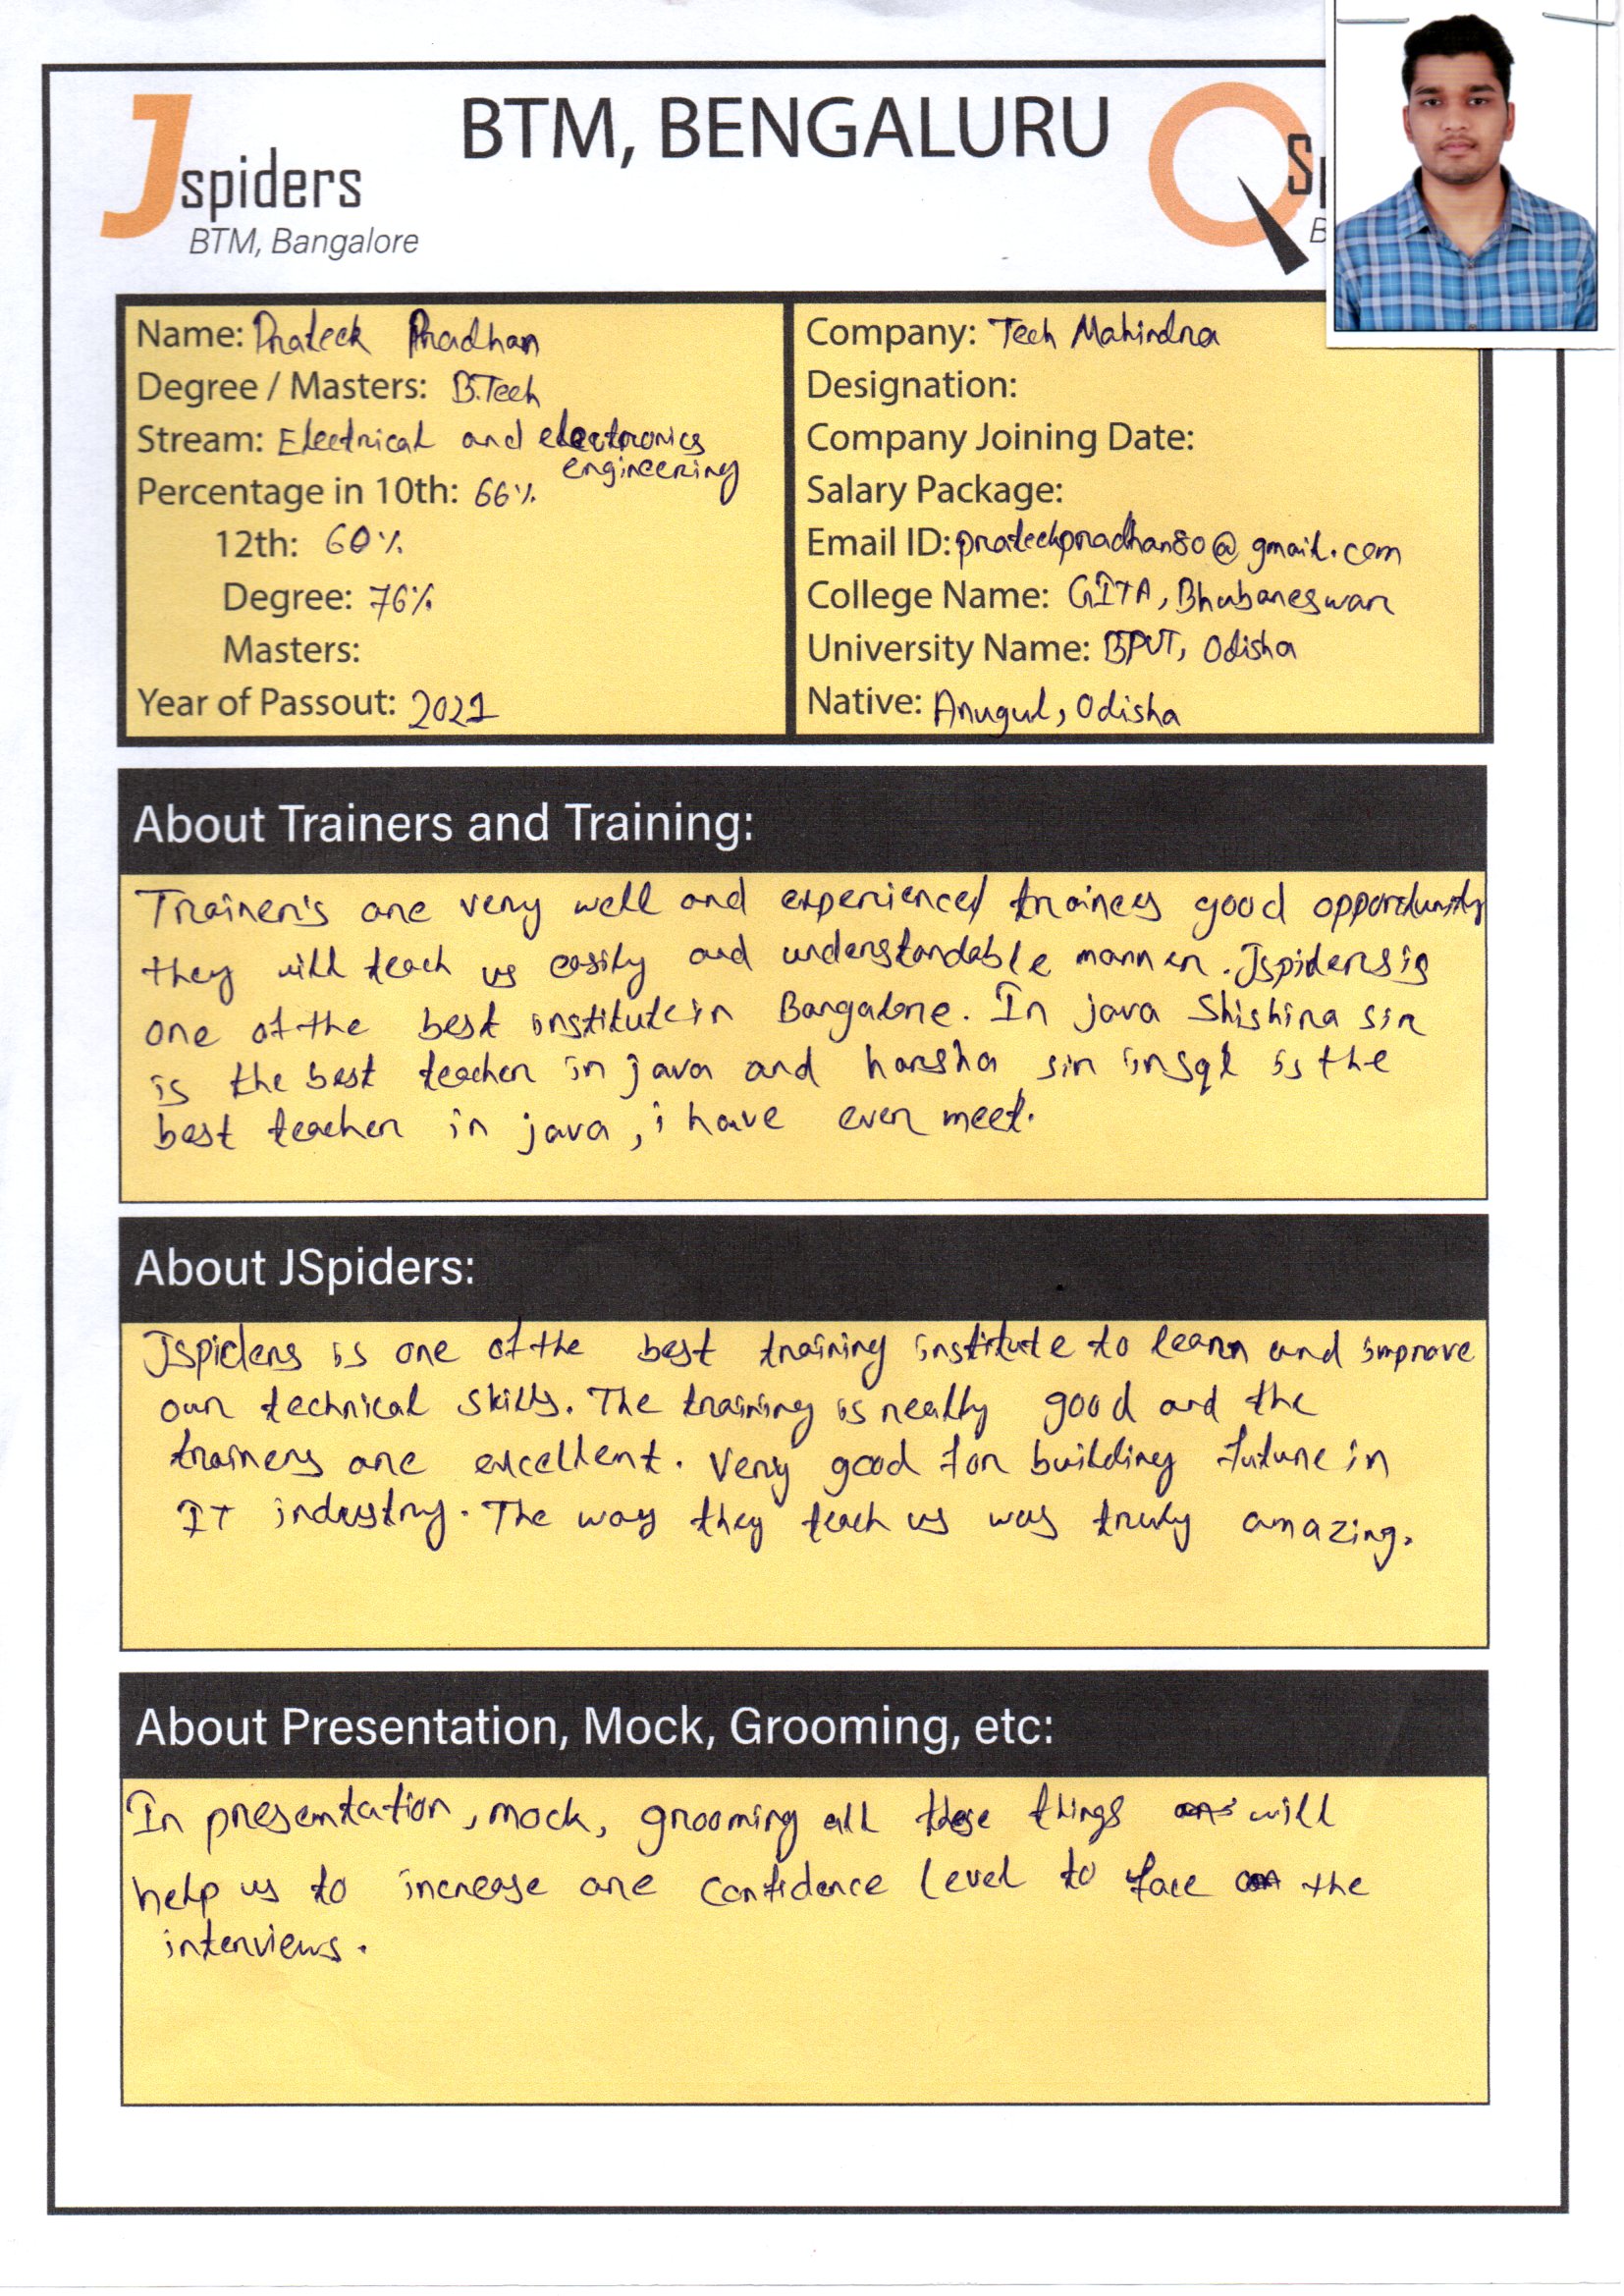 BTM, BENGALURU
Jspiders
BTM, Bangalore
Name: Prateek Pradhan
Degree / Masters: B.Tech
Stream: Electrical and electronics
engineering
Percentage in 10th: 66%
12th: 60%
Degree: 76%
Masters:
Year of Passout: 2021
Company: Tech Mahindra
Designation:
Company Joining Date:
Salary Package:
Email ID: prateekpradhan80@gmail.com
College Name: GITA, Bhubaneswar
University Name: BPUT, Odisha
Native: Anugul, Odisha
About Trainers and Training:
Trainer's are very well and experienced trainees good opportunity
they will teach us easily and understandable manner. Jspiders is
one of the best institute in Bangalore. In java Shishira sir
is the best teacher in java and harsha sir iinsql is the
best teacher in java, i have ever meet.
About JSpiders:
Jspiders is one of the best training institute to learn and improve
our technical skills. The training is really good and the
trainers are excellent. Very good for building future in
IT industry. The way they teach us was truly amazing.
About Presentation, Mock, Grooming, etc:
In presentation, mock, grooming all these things will
help us to increase are confidence level to face the
interviews.